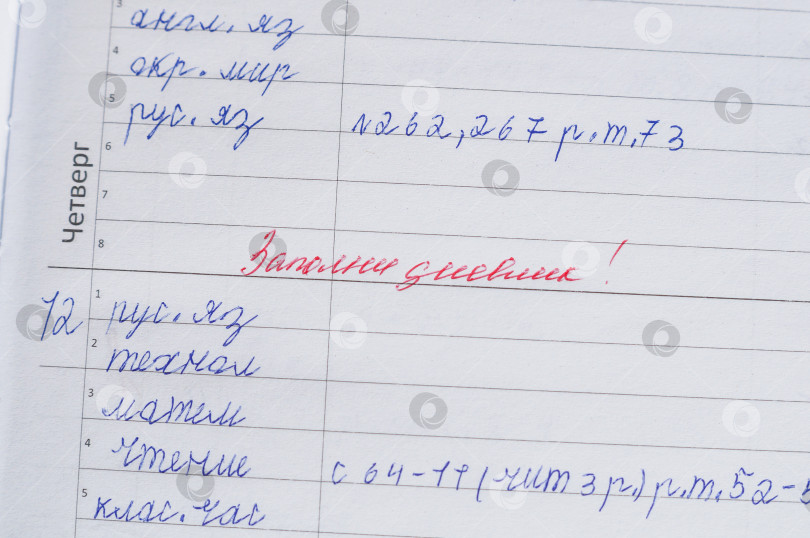 3 англ. яз
4 окр. мир
5 рус. яз N262, 267 р.т. 73
6
Четверг
7
8
Заполни дневник!
12
1 рус. яз
2 технол
3 матем
4 чтение с 64-77 (чит 3 р.) р.т. 52-5
5 клас. час